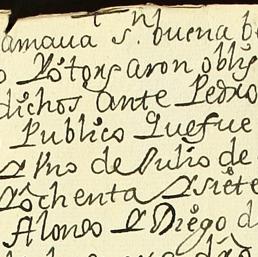 amaua s. buena be
o Lotorgaron oblig
dichos ante Pedro
Publico Quefue
de Julio de
ochenta Ysiete
Alonso Y Diego d